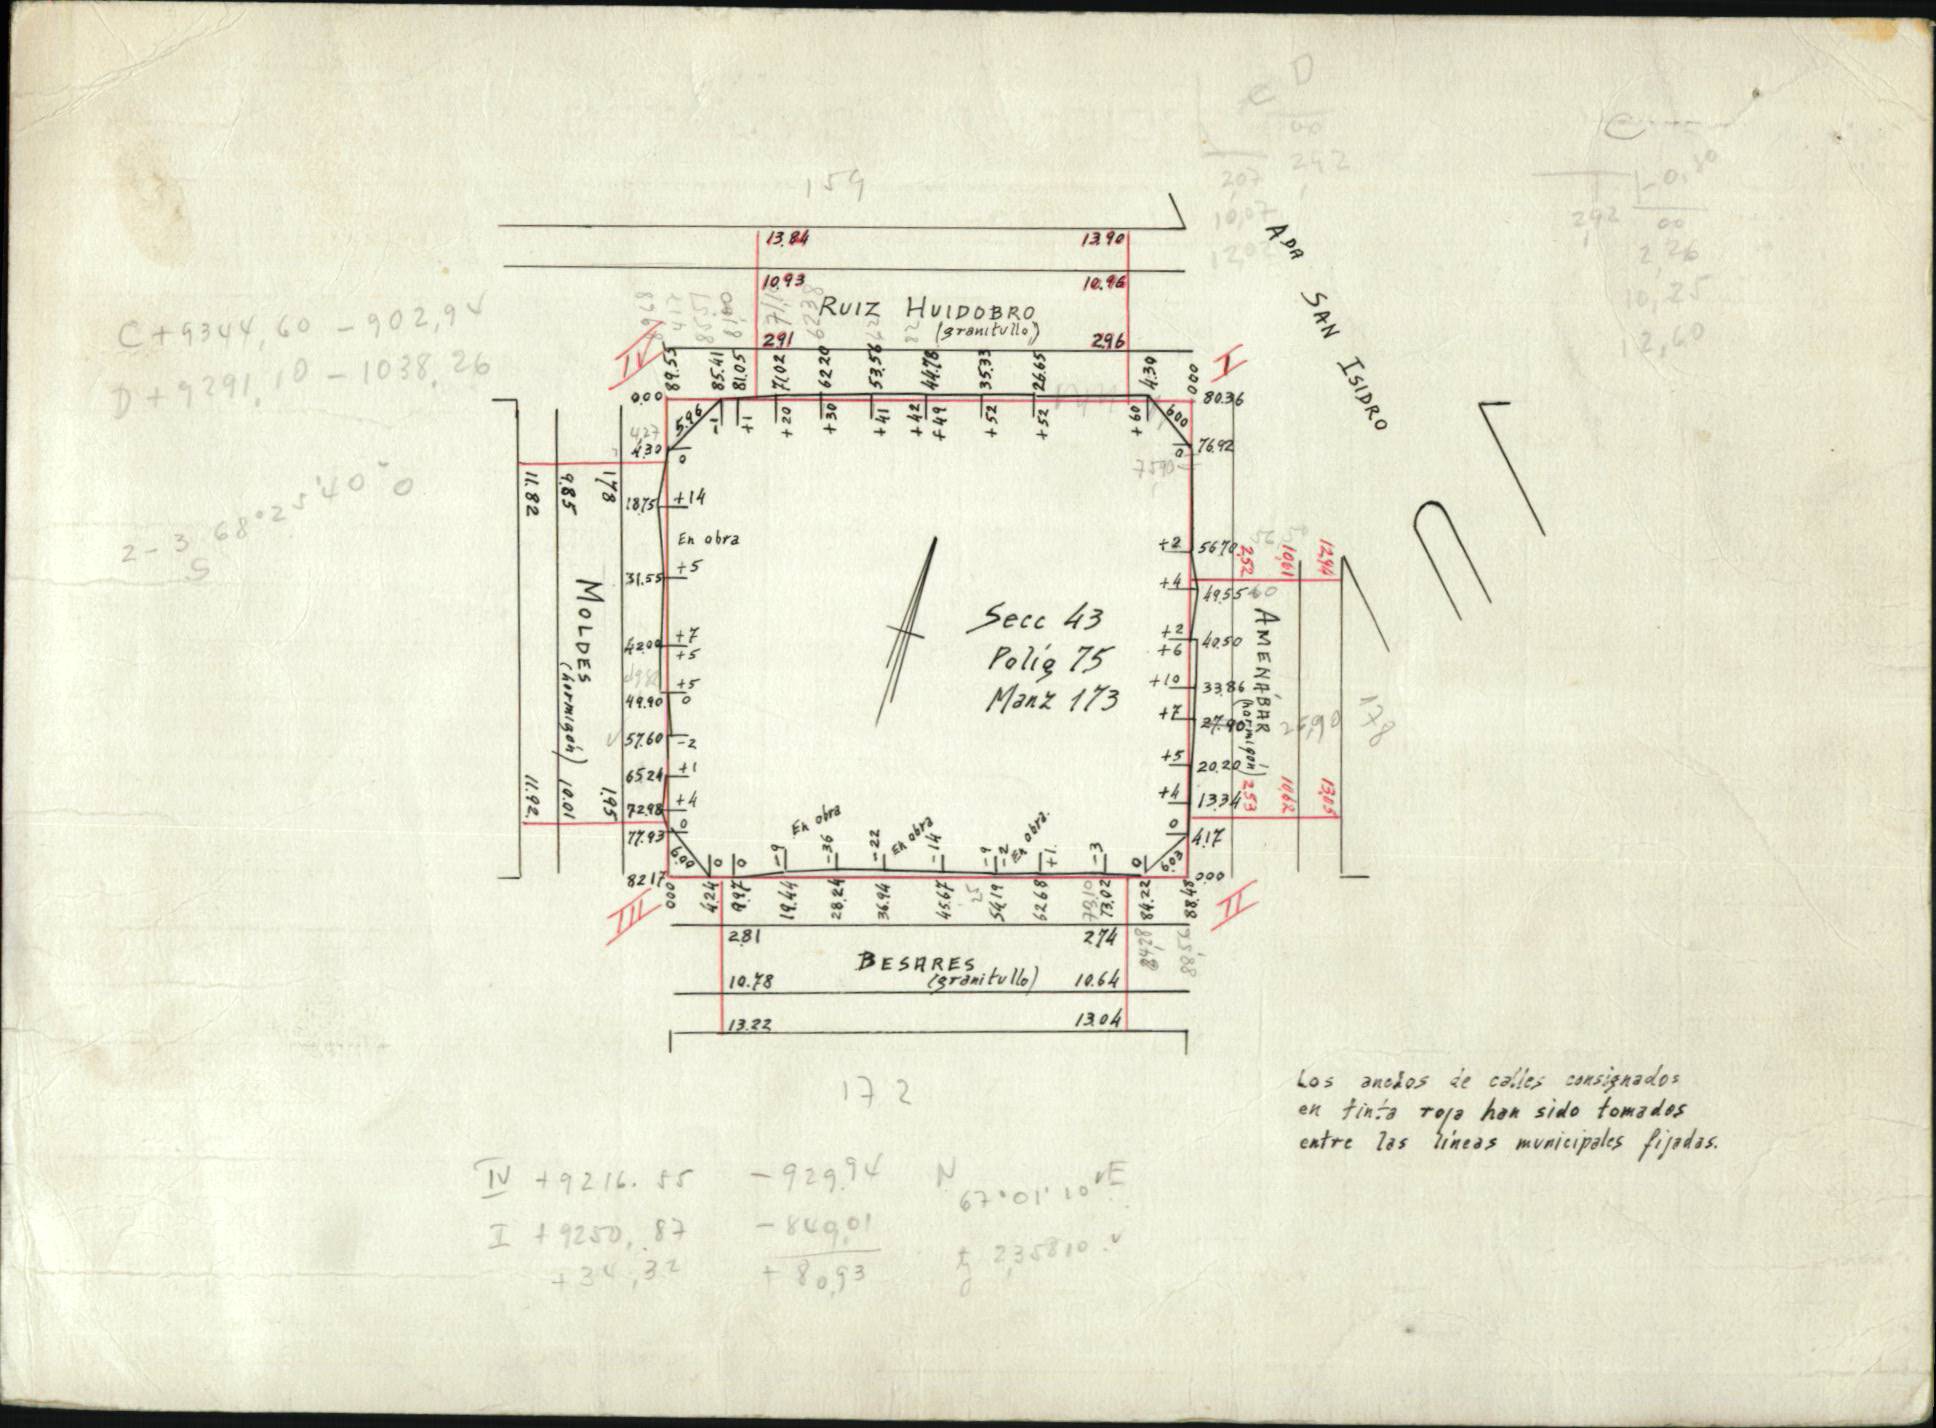 159
C D
00
207 292
10,07
-0,80
292 00
2,26
10,25
12,60
13.84 13.90
10.93 10.96
RUIZ HUIDOBRO
(granitullo)
291 296
ADA SAN ISIDRO
C+9344,60 -902,94
D+9291,10 -1038,26
IV
I
89.55 85.41 81.05 71.02 62.20 53.56 44.78 35.33 26.65 4.30 0.00
-1 +1 +20 +30 +41 +42 +49 +52 +52 +60
0.00
5.96
4,27
4.30
0
18.75 +14
En obra
31.55 +5
42.00 +7
+5
49.90 +5
0
57.60 -2
65.24 +1
72.98 +4
77.93 0
6.00
82.17
80.36
6.00
76.92
0
+2 56.70
+4 49.55
+2 40.50
+6
+10 33.86
+7 27.90
+5 20.20
+4 13.34
0 4.17
6.03
0.00
11.82 9.85 1.78
MOLDES
(hormigón)
11.92 10.01 1.95
2,52 10,61 12,94
AMENÁBAR
(hormigón)
26,90
178
2,53 10,62 13,05
Secc 43
Políg 75
Manz 173
En obra En obra En obra.
0 0 -9 -36 -22 -14 -9 -2 +1 -3 0
III
II
0.00 4.24 9.97 19.44 28.24 36.94 45.67 54.19 62.68 73.02 84.22 88.48
73,10 84,28 88,55
2.81 2.74
BESARES
(granitullo)
10.78 10.64
13.22 13.04
172
Los anchos de calles consignados
en tinta roja han sido tomados
entre las líneas municipales fijadas.
IV +9216.55 -929,94 N 67.01.10 E
I +9250,87 -849,01
+34,32 +80,93 tg 2,35810